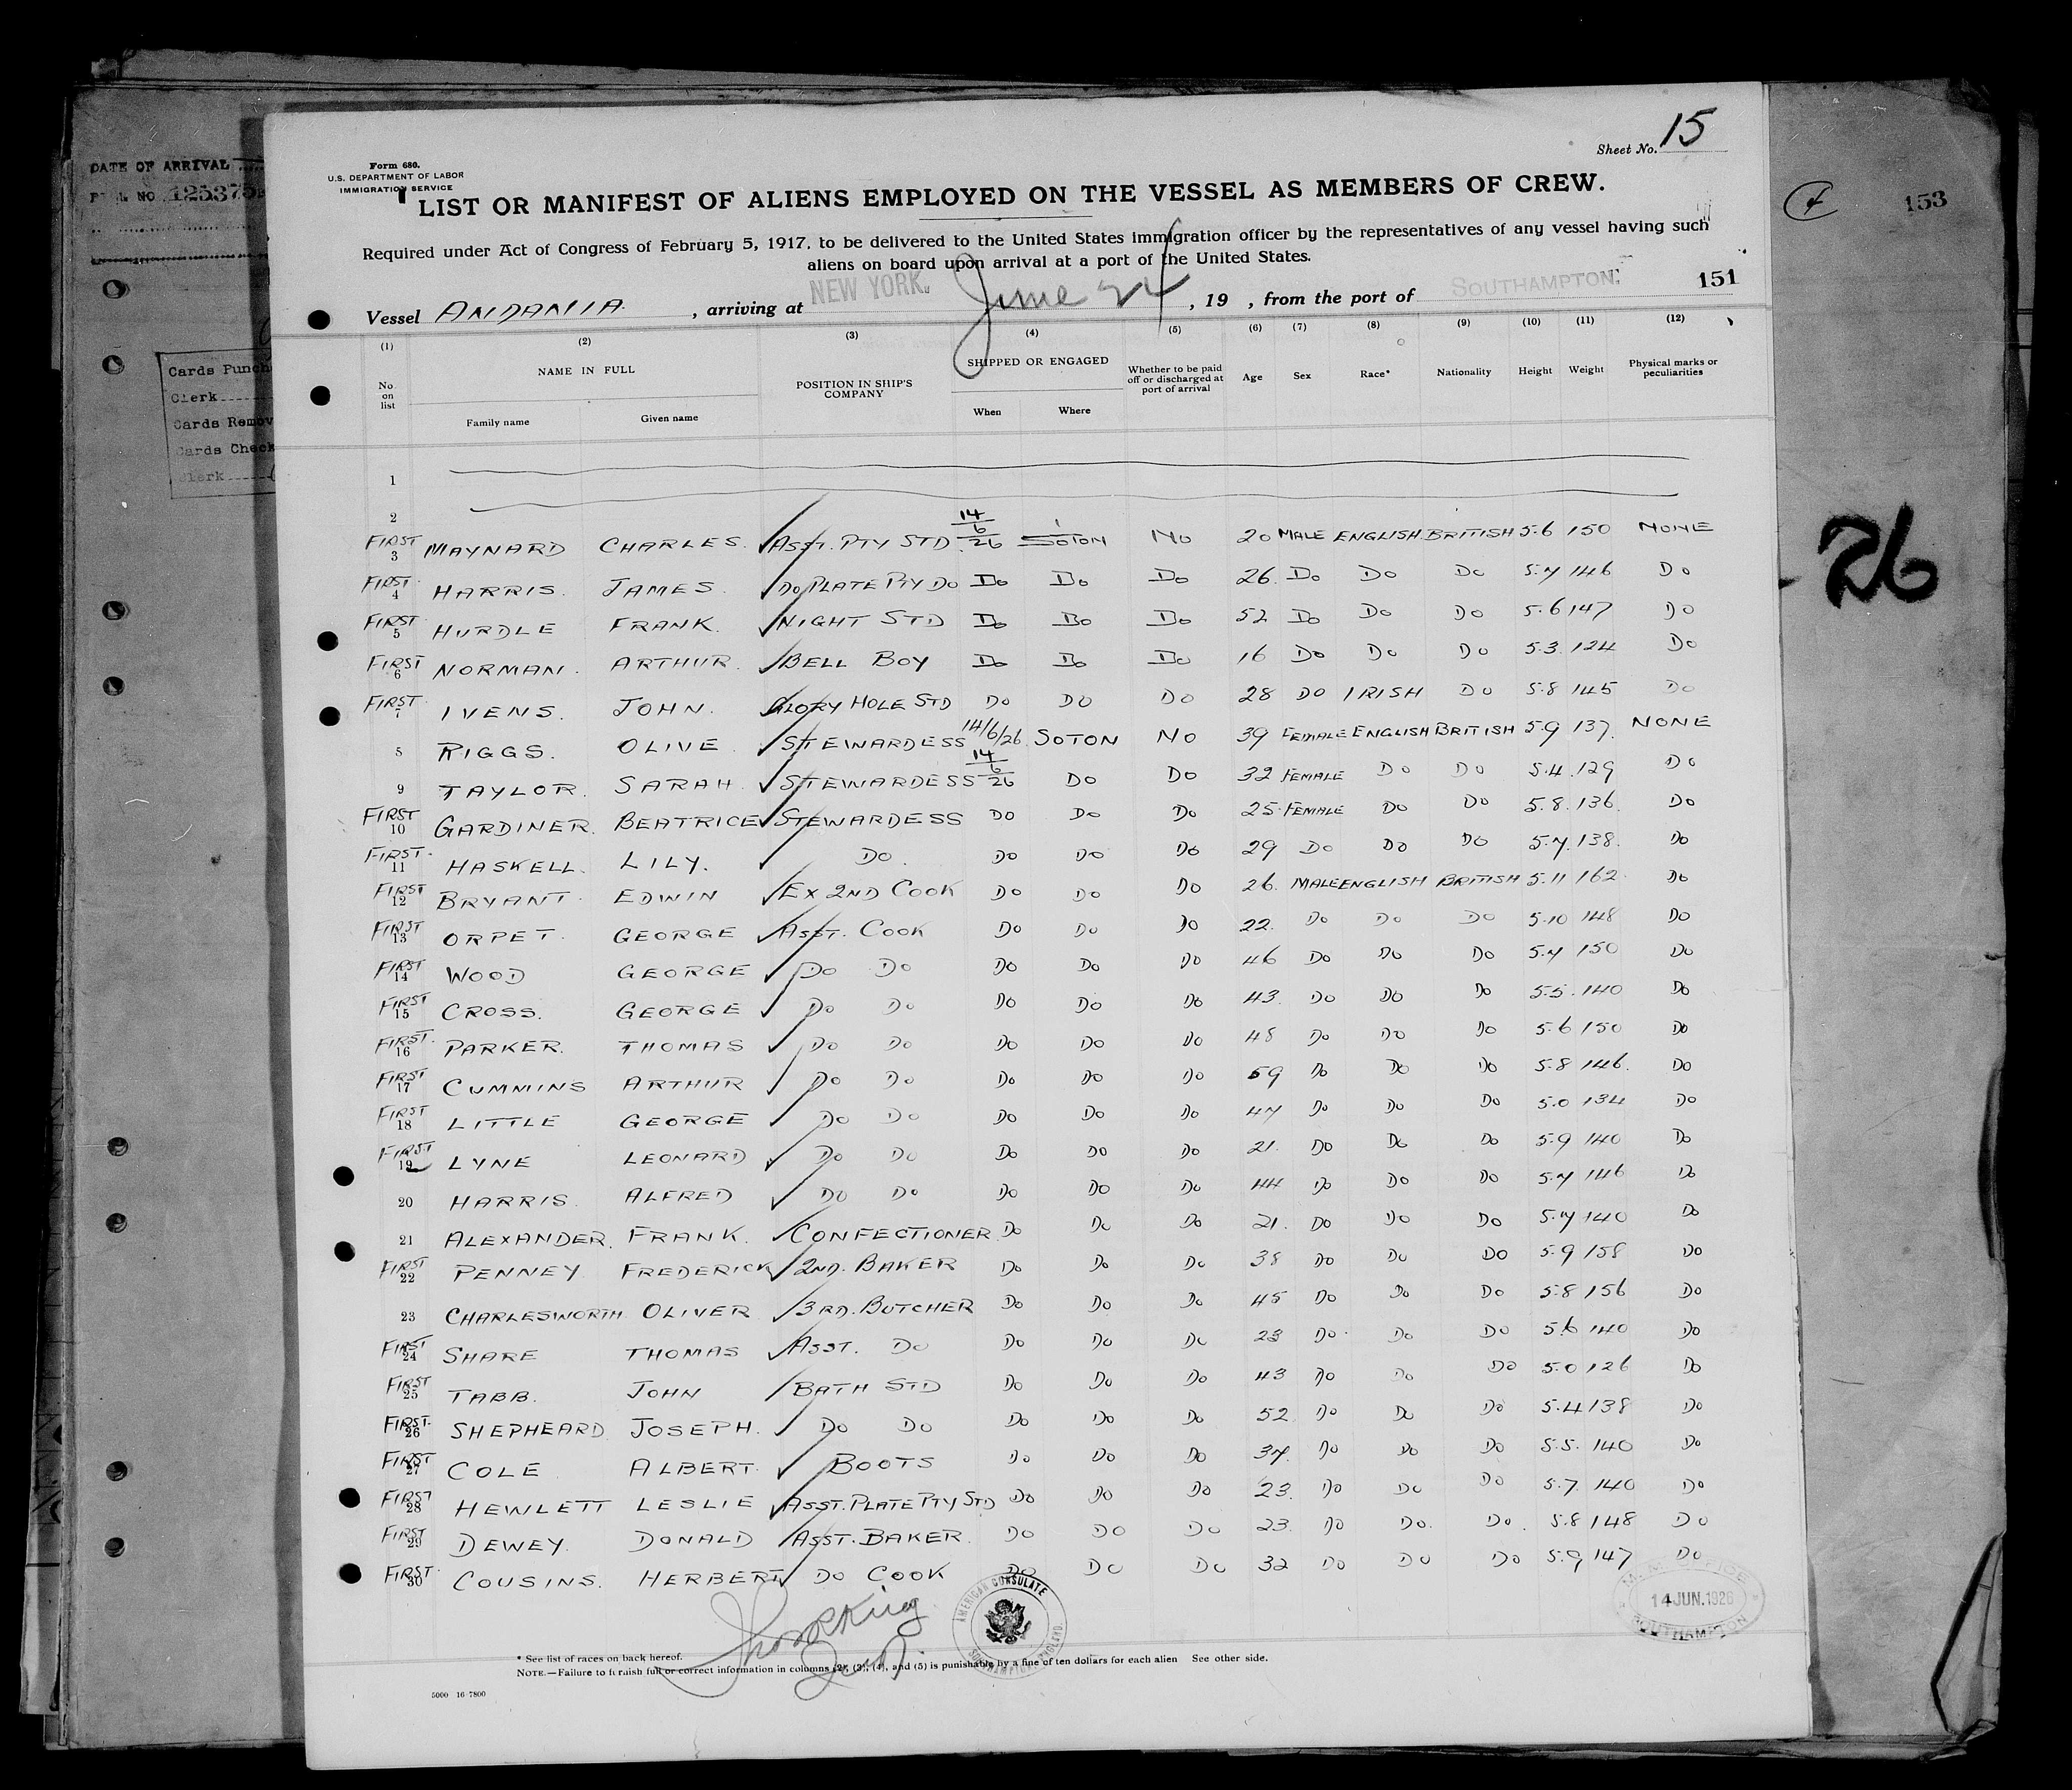 Sheet No. 15
Form 680.
U.S. DEPARTMENT OF LABOR
IMMIGRATION SERVICE
DATE OF ARRIVAL
125375
LIST OR MANIFEST OF ALIENS EMPLOYED ON THE VESSEL AS MEMBERS OF CREW.
153
Required under Act of Congress of February 5, 1917, to be delivered to the United States immigration officer by the representatives of any vessel having such
aliens on board upon arrival at a port of the United States.
Vessel ANDANIA. , arriving at NEW YORK. June 24 , 19 , from the port of SOUTHAMPTON. 151
(1) (2) (3) (4) (5) (6) (7) (8) (9) (10) (11) (12)
No on list NAME IN FULL POSITION IN SHIP'S COMPANY SHIPPED OR ENGAGED Whether to be paid off or discharged at port of arrival Age Sex Race* Nationality Height Weight Physical marks or peculiarities
Family name Given name When Where
Cards Punch
Clerk
Cards Remov
Cards Check
Clerk
1
2
FIRST 3 MAYNARD CHARLES. ASST. PTY STD. 14/6/26 SOTON NO 20 MALE ENGLISH BRITISH 5.6 150 NONE
FIRST 4 HARRIS. JAMES. DO PLATE PTY DO DO DO DO 26. DO DO DO 5.7 146 DO
FIRST 5 HURDLE FRANK. NIGHT STD DO DO DO 52 DO DO DO 5.6 147 DO
FIRST 6 NORMAN. ARTHUR. BELL BOY DO DO DO 16 DO DO DO 5.3. 124 DO
FIRST 7 IVENS. JOHN. GLORY HOLE STD DO DO DO 28 DO IRISH DO 5.8 145 DO
8 RIGGS. OLIVE. STEWARDESS 14/6/26. SOTON NO 39 FEMALE ENGLISH BRITISH 5.9 137. NONE
9 TAYLOR. SARAH. STEWARDESS 14/6/26 DO DO 32 FEMALE DO DO 5.4. 129 DO
FIRST 10 GARDINER. BEATRICE STEWARDESS DO DO DO 25 FEMALE DO DO 5.8. 136. DO
FIRST. 11 HASKELL. LILY. DO. DO DO DO 29 DO DO DO 5.7. 138. DO
FIRST 12 BRYANT. EDWIN EX 2ND COOK DO DO DO 26. MALE ENGLISH BRITISH 5.11 162. DO
FIRST 13 ORPET. GEORGE ASST. COOK DO DO DO 22. DO DO DO 5.10 148 DO
FIRST 14 WOOD GEORGE DO DO DO DO DO 46 DO DO DO 5.7 150 DO
FIRST 15 CROSS. GEORGE DO DO DO DO DO 43. DO DO DO 5.5. 140 DO
FIRST. 16 PARKER. THOMAS DO DO DO DO DO 48 DO DO DO 5.6 150 DO
FIRST 17 CUMMINS ARTHUR DO DO DO DO DO 59 DO DO DO 5.8 146. DO
FIRST 18 LITTLE GEORGE DO DO DO DO DO 47 DO DO DO 5.0 134 DO
FIRST 19 LYNE LEONARD DO DO DO DO DO 21. DO DO DO 5.9 140 DO
20 HARRIS. ALFRED DO DO DO DO DO 44 DO DO DO 5.7 146 DO
21 ALEXANDER. FRANK. CONFECTIONER. DO DO DO 21. DO DO DO 5.7 140 DO
FIRST 22 PENNEY FREDERICK 2ND. BAKER DO DO DO 38 DO DO DO 5.9 158 DO
23 CHARLESWORTH OLIVER 3RD. BUTCHER DO DO DO 45 DO DO DO 5.8 156 DO
FIRST 24 SHARE THOMAS ASST. DO DO DO DO 23 DO DO DO 5.6 140 DO
FIRST 25 TABB. JOHN BATH STD DO DO DO 43 DO DO DO 5.0 126 DO
FIRST. 26 SHEPHEARD JOSEPH. DO DO DO DO DO 52 DO DO DO 5.4 138 DO
FIRST 27 COLE ALBERT. BOOTS DO DO DO 37. DO DO DO 5.5. 140 DO
FIRST 28 HEWLETT LESLIE ASST. PLATE PTY STD DO DO DO 23. DO DO DO 5.7. 140 DO
FIRST 29 DEWEY. DONALD ASST. BAKER. DO DO DO 23. DO DO. DO. 5.8 148 DO
FIRST. 30 COUSINS. HERBERT DO COOK DO DO DO 32 DO DO DO 5.9 147 DO
26
AMERICAN CONSULATE
SOUTHAMPTON, ENGLAND.
14 JUN. 1926
SOUTHAMPTON
* See list of races on back hereof.
NOTE.—Failure to furnish full or correct information in columns (2), (3), (4), and (5) is punishable by a fine of ten dollars for each alien See other side.
5000 16-7800